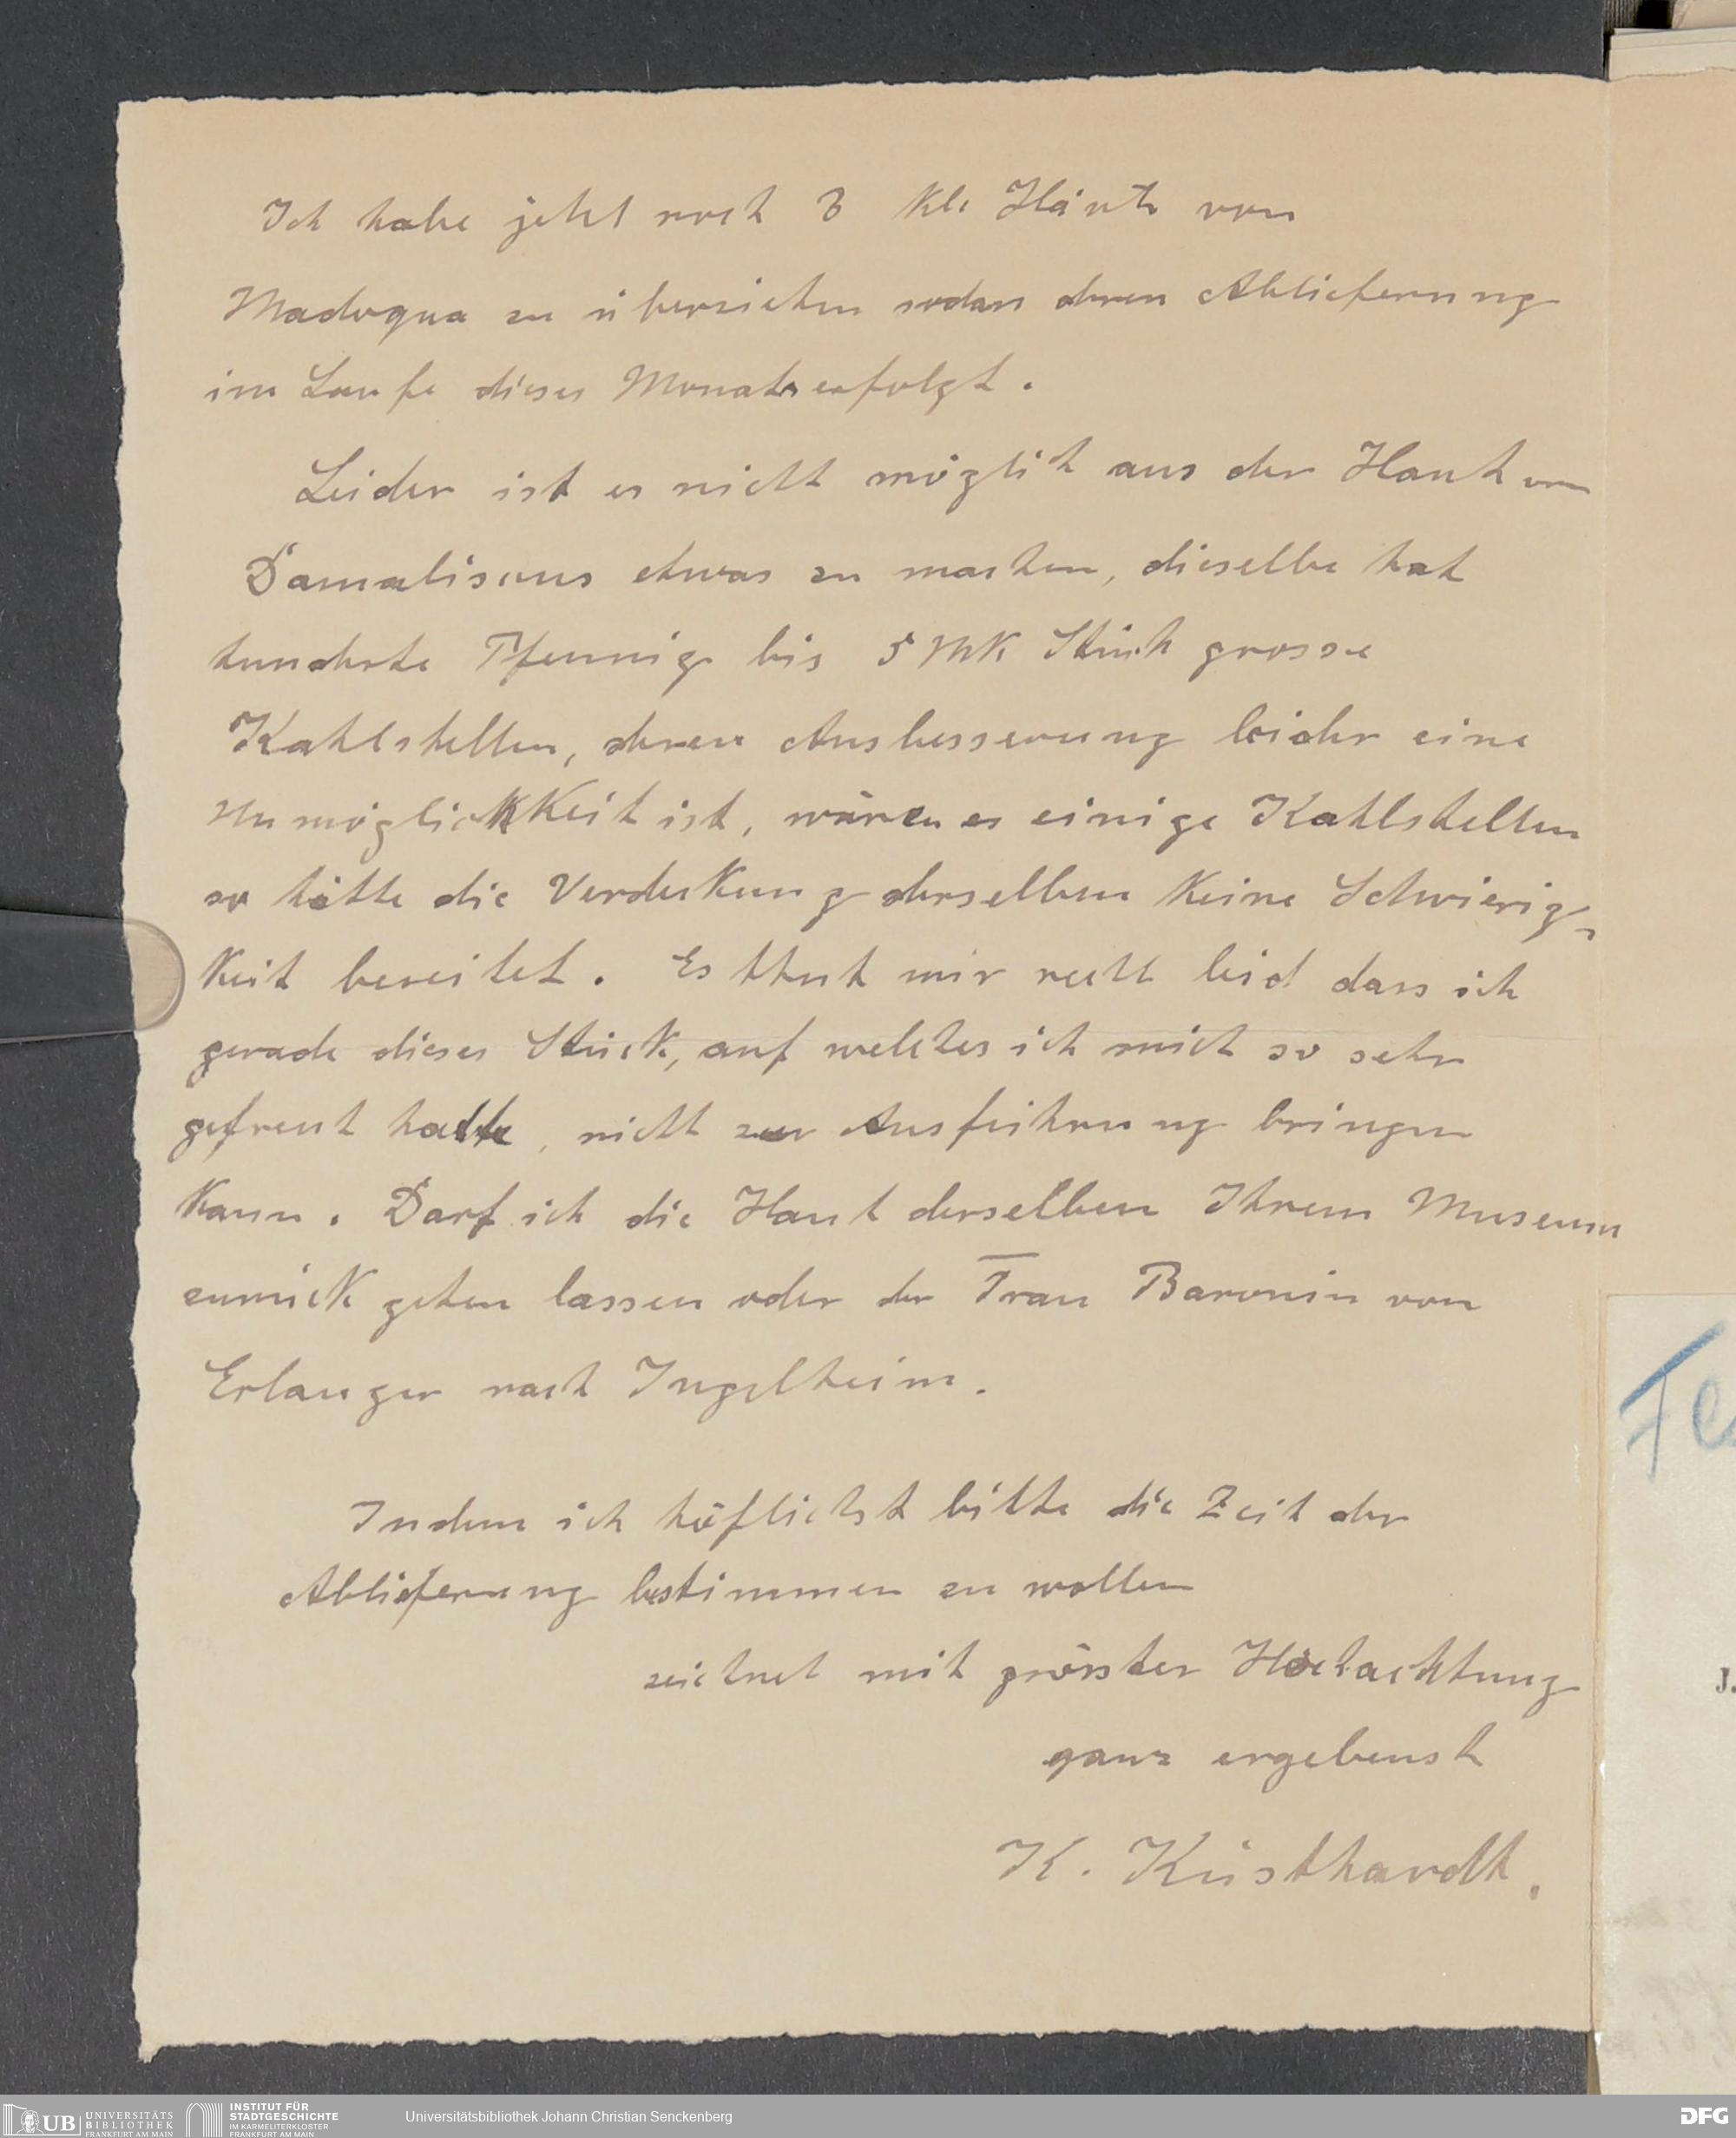 Ich habe jetzt noch 3 kl. Häute von
Madoqua zu überziehen sodass deren Ablieferung
im Laufe dieses Monats erfolgt.
Leider ist es nicht möglich aus der Haut von
Damaliscus etwas zu machen, dieselbe hat
hunderte Pfennig bis 5 MK Stück grosse
Kahlstellen, deren Ausbesserung leider eine
Unmöglichkeit ist, wären es einige Kahlstellen
so hätte die Verdekung derselben keine Schwierig-
keit bereitet. Es thut mir recht leid dass ich
gerade dieses Stück, auf welches ich mich so sehr
gefreut hatte, nicht zur Ausführung bringen
kann. Darf ich die Haut derselben Ihrem Museum
zurück gehen lassen oder der Frau Baronin von
Erlanger nach Ingelheim.
Indem ich höflichst bitte die Zeit der
Ablieferung bestimmen zu wollen
zeichnet mit grösster Hochachtung
ganz ergebenst
K. Küsthardt.
J.
UB UNIVERSITÄTS
BIBLIOTHEK
FRANKFURT AM MAIN
INSTITUT FÜR
STADTGESCHICHTE
IM KARMELITERKLOSTER
FRANKFURT AM MAIN
Universitätsbibliothek Johann Christian Senckenberg
DFG